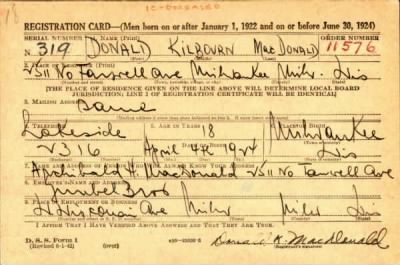 REGISTRATION CARD—(Men born on or after January 1, 1922 and on or before June 30, 1924)
SERIAL NUMBER
1. NAME (Print)
ORDER NUMBER
N 319 DONALD KILBOURN MacDONALD 11576
2. PLACE OF RESIDENCE (Print)
2511 No Farwell Ave Milwaukee Milw. Wis
[THE PLACE OF RESIDENCE GIVEN ON THE LINE ABOVE WILL DETERMINE LOCAL BOARD
JURISDICTION; LINE 2 OF REGISTRATION CERTIFICATE WILL BE IDENTICAL]
3. MAILING ADDRESS
Same
4. TELEPHONE
5. AGE IN YEARS
Lakeside 18 Milwaukee
2316 April 4th 1924 Wis
7. NAME AND ADDRESS OF PERSON WHO WILL ALWAYS KNOW YOUR ADDRESS
Archibald H. MacDonald 2511 No Farwell Ave
8. EMPLOYER'S NAME AND ADDRESS
Gimbel Bros
9. PLACE OF EMPLOYMENT OR BUSINESS
W Wisconsin Ave Milw Milw Wis
I AFFIRM THAT I HAVE VERIFIED ABOVE ANSWERS AND THAT THEY ARE TRUE.
D. S. S. Form 1
(Revised 6-1-42)
Donald K. MacDonald